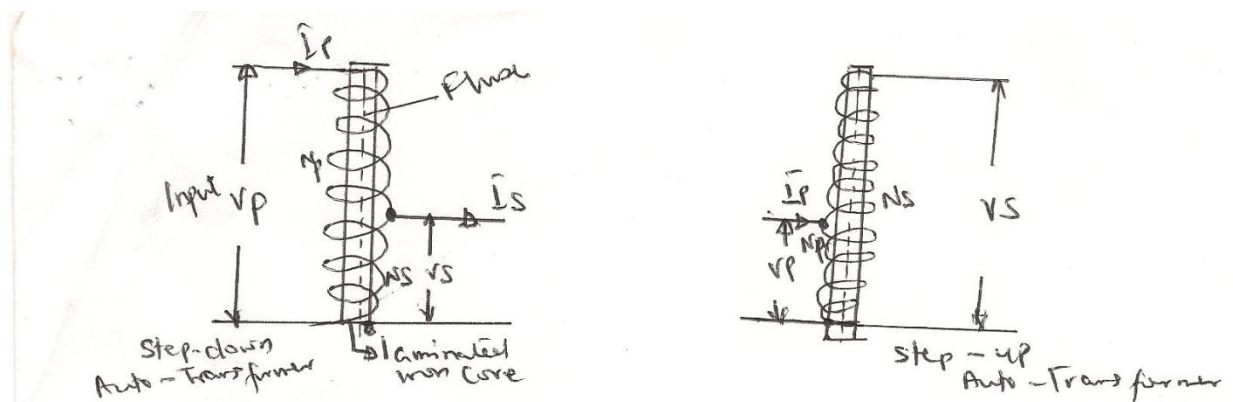 Ip
Flux
Np
Input Vp
Is
Ns
Vs
Step-down
Auto-Transformer
laminated
iron core
Ip
Np
Vp
Ns
Vs
Step-up
Auto-Transformer